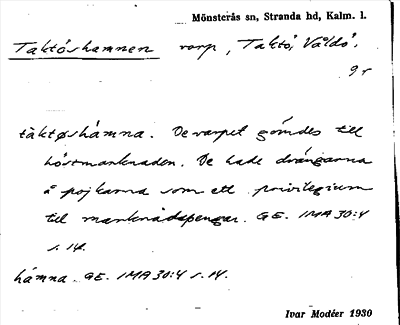 Mönsterås sn, Stranda hd, Kalm. l.
Taktöshamnen varp, Taktö, Våldö.
9 r
täktøshámna. De varpet gömdes till
höstmarknaden. De hade drängarna
å pojkarna som ett privilegium
till marknådspengar. GE. IMA 30:4
s. 14.
hámna. GE. IMA 30:4 s. 14.
Ivar Modéer 1930